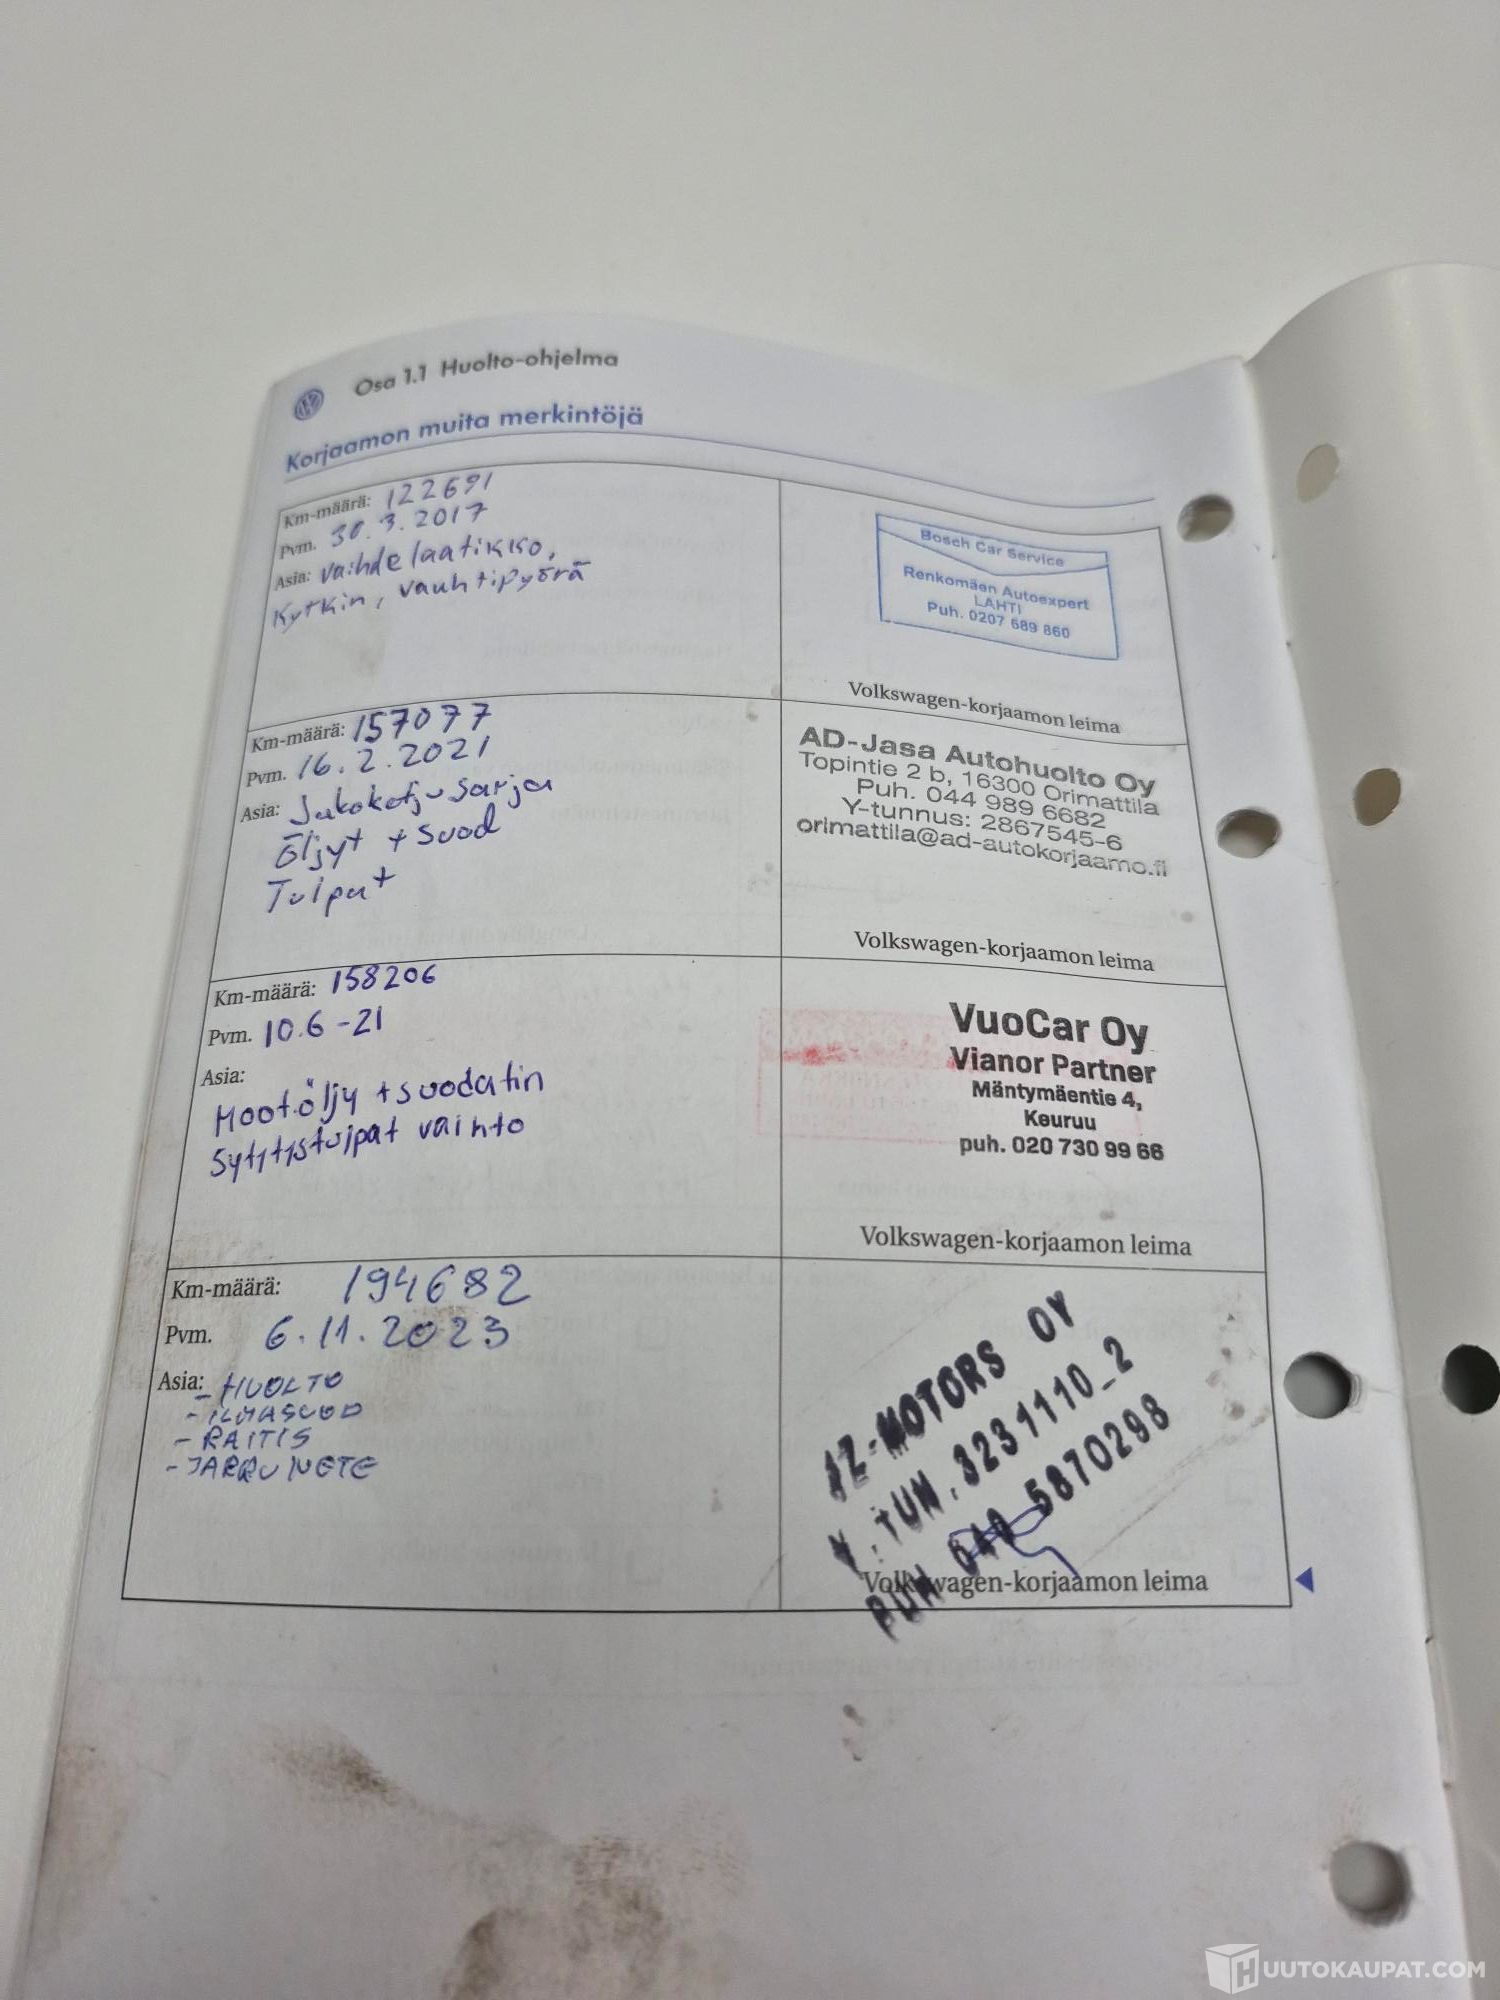 Osa 1.1 Huolto-ohjelma
Korjaamon muita merkintöjä
Km-määrä: 122691
Pvm. 30.3.2017
Asia: vaihdelaatikko,
Kytkin, vauhtipyörä
Bosch Car Service
Renkomäen Autoexpert
LAHTI
Puh. 0207 689 860
Volkswagen-korjaamon leima
Km-määrä: 157077
Pvm. 16.2.2021
Asia: Jakoketjusarja
Öljyt + suod
Tulpat
AD-Jasa Autohuolto Oy
Topintie 2 b, 16300 Orimattila
Puh. 044 989 6682
Y-tunnus: 2867545-6
orimattila@ad-autokorjaamo.fi
Volkswagen-korjaamon leima
Km-määrä: 158206
Pvm. 10.6-21
Asia:
Moot.öljy + suodatin
Sytytystulpat vaihto
VuoCar Oy
Vianor Partner
Mäntymäentie 4,
Keuruu
puh. 020 730 99 66
Volkswagen-korjaamon leima
Km-määrä: 194682
Pvm. 6.11.2023
Asia: - HUOLTO
- ILMASUOD
- RAITIS
- JARRUNESTE
JZ-MOTORS OY
Y.TUN.3231110_2
PUH 040 5870298
Volkswagen-korjaamon leima
HUUTOKAUPAT.COM